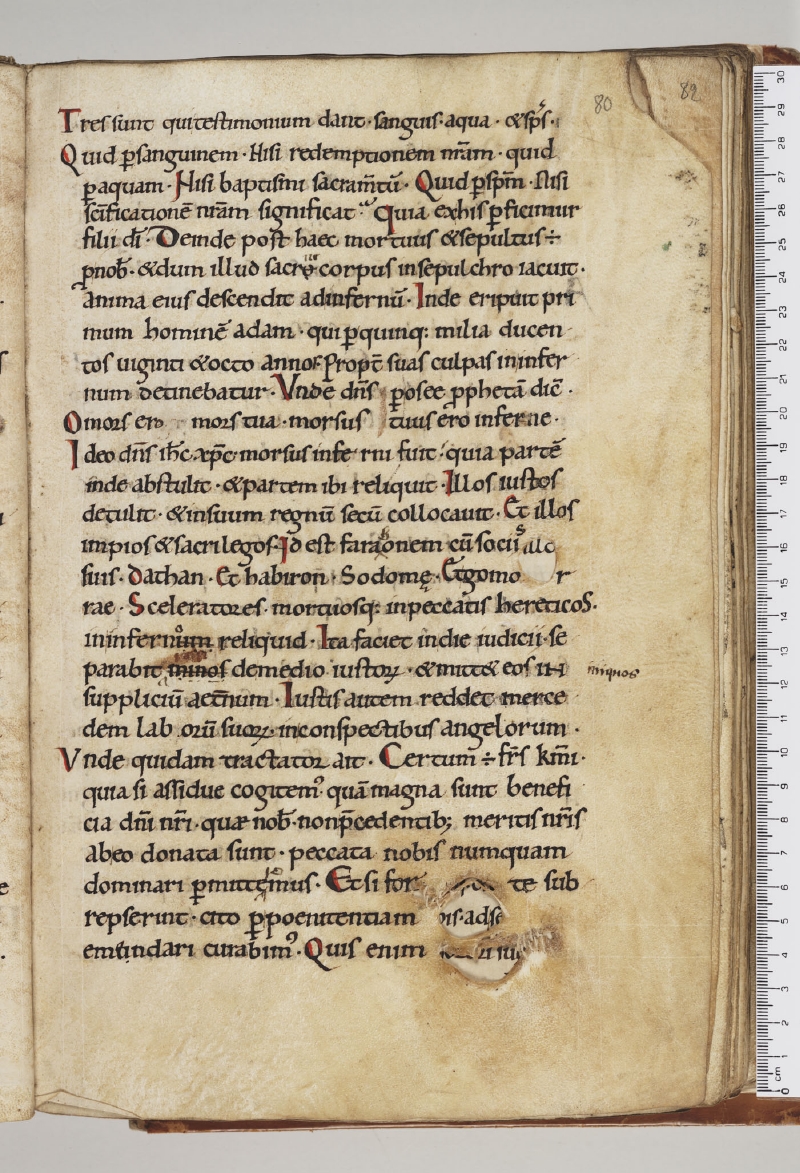 80
82
Tres sunt qui testimonium dant· sanguis· aqua· & sp̄s·
Quid ꝑ sanguinem· Nisi redemptionem nr̄am· quid
ꝑ aquam· Nisi baptismi sacram̄tū· Quid ꝑ sp̄m· Nisi
sc̄ificationē nr̄am significat· Quia ex his ꝑficimur
filii dī· Deinde post haec mortuus & sepultus ÷
ꝓ nob̄· & dum illud sacrū corpus in sepulchro iacuit·
anima eius descendit ad infernū· Inde eripuit pri
mum hominē adam· qui ꝑ quinq: milia ducen
tos uiginti & octo annos Propt̄ suas culpas in infer
num detinebatur· Vnde dn̄s ꝑ osee ꝓphetā diē·
O mors ero mors tua· morsus tuus ero inferne·
Ideo dn̄s ih̄c xp̄c morsus inferni fuit· quia partē
inde abstulit· & partem ibi reliquit· Illos iustos
detulit· & in suum regnū secū collocauit· Et illos
impios & sacrilegos· Id est faraonem cū sociis
suis· Dathan· Et habiron· Sodomę· Et gomo r
rae· Sceleratores· mortuosq: in peccatis hereticos·
in infernum reliquid· Ita faciet in die iudicii· se
parabit de medio iustoꝝ· & mitt& eos in
iniquos
suppliciū aet̄num· Iustis autem reddet merce
dem laborū suoꝝ· in conspectibus angelorum·
Vnde quidam tractator ait· Certum ÷ fr̄s km̄i·
quia si assidue cogitem᾿ quā magna sunt benefi
cia dn̄i nr̄i· quae nob̄· non p̄cedentib; meritis nr̄is
ab eo donata sunt· peccata nobis numquam
dominari ꝑmittimus· Et si for te sub
repserint· cito ꝑ poenitentiam
emendari curabim᾿· Quis enim
30
29
28
27
26
25
24
23
22
21
20
19
18
17
16
15
14
13
12
11
10
9
8
7
6
5
4
3
2
1
cm
0